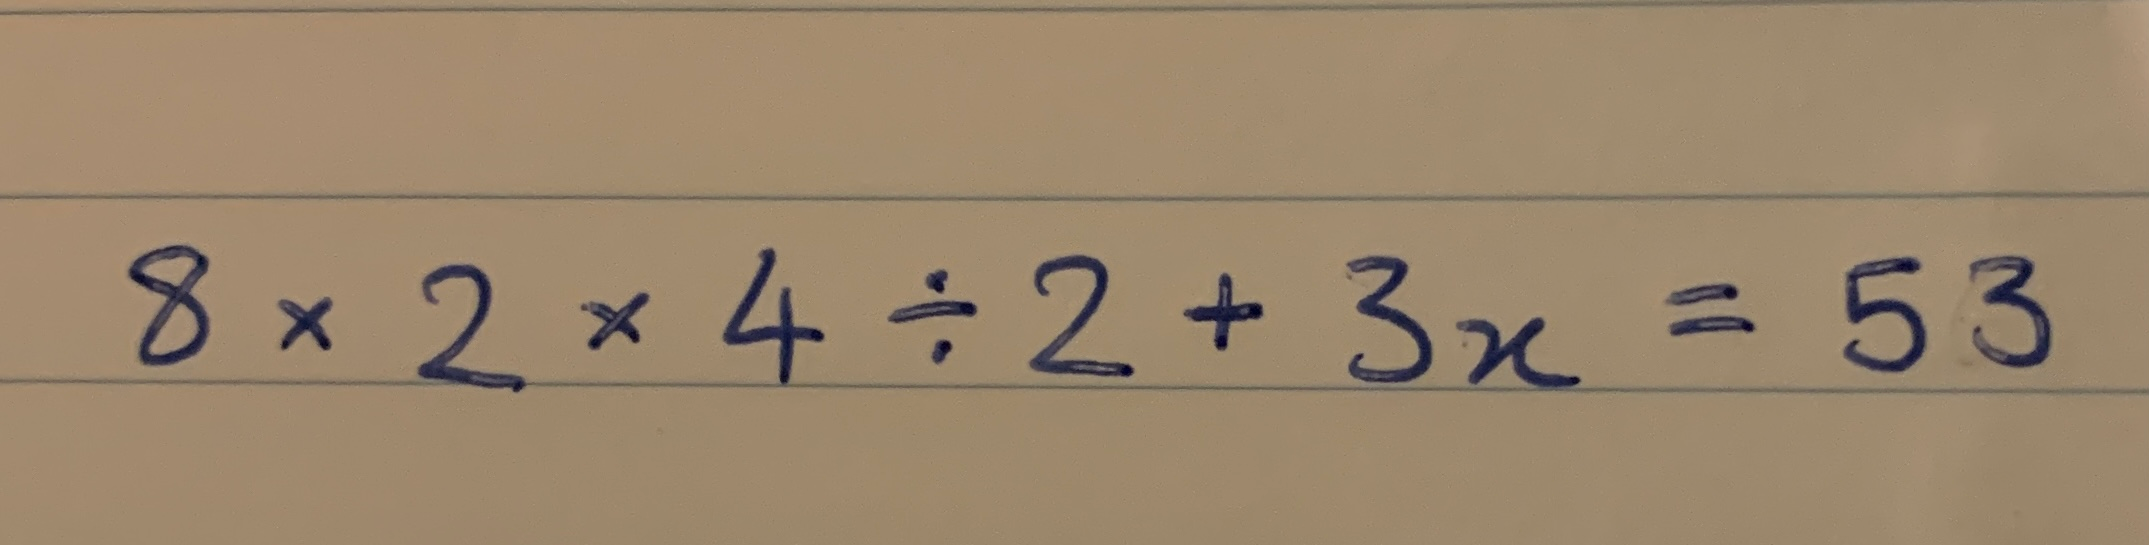 8 × 2 × 4 ÷ 2 + 3x = 53